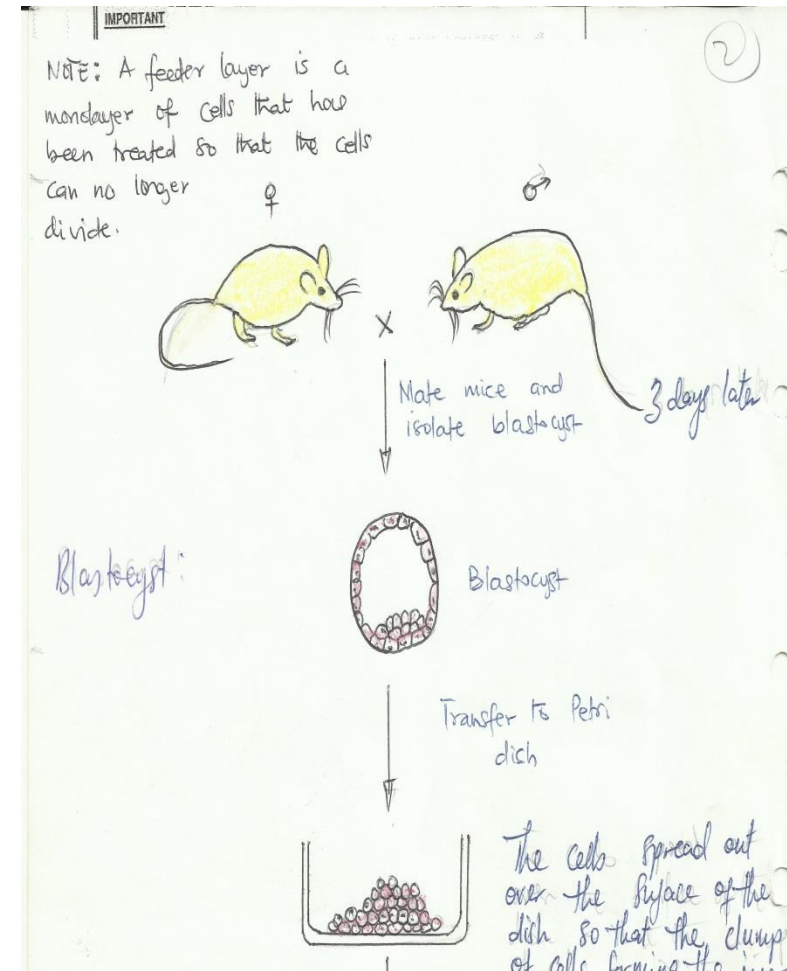 IMPORTANT
2
NOTE: A feeder layer is a
monolayer of cells that have
been treated so that the cells
can no longer
divide.
♀
♂
X
Mate mice and
isolate blastocyst
3 days later
Blastocyst:
Blastocyst
Transfer to Petri
dish
The cells spread out
over the surface of the
dish so that the clump
of cells forming the